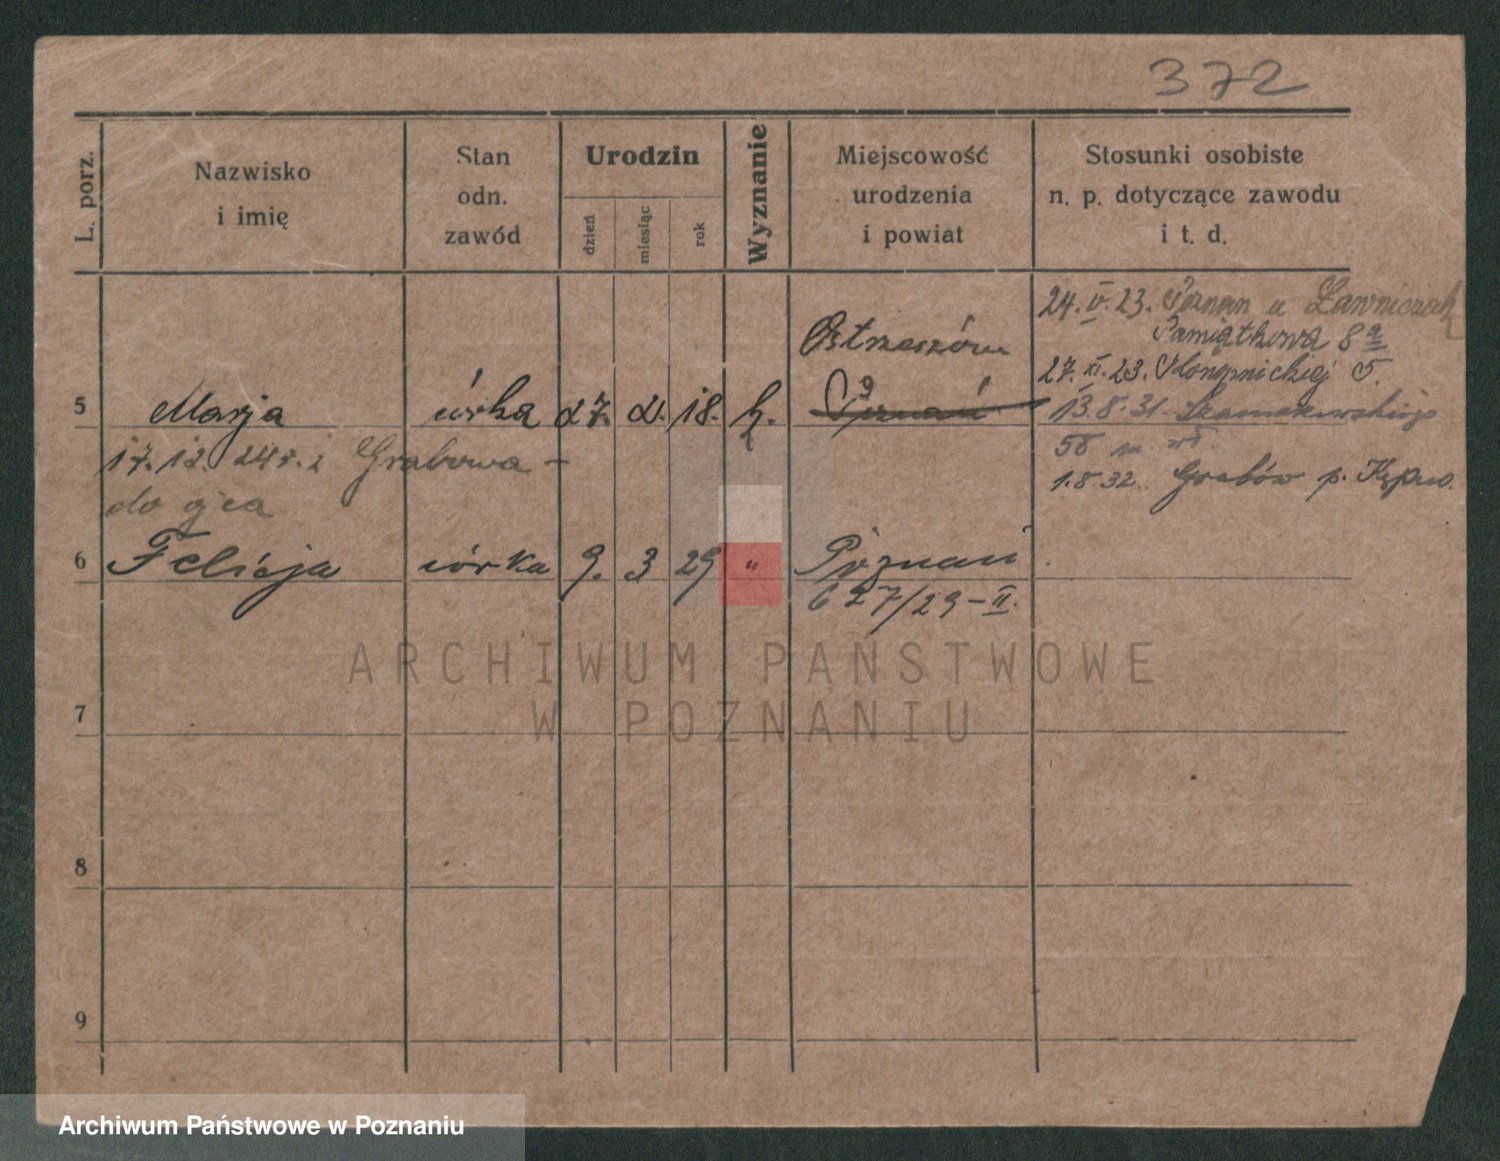 372
L. porz.
Nazwisko
i imię
Stan
odn.
zawód
Urodzin
dzień
miesiąc
rok
Wyznanie
Miejscowość
urodzenia
i powiat
Stosunki osobiste
n. p. dotyczące zawodu
i t. d.
24. IV. 23. Poznań u Ławniczak
Pamiątkowa 8a
27. XI. 23. Słonecznickiej 5.
Ostrzeszów
5 Marja córka 27. 2. 18. k. Poznań
13.8.31. Szamarzewskiego
17.12. 24 r. z Grabowa -
56 m.
do ojca
1.8.32. Grabów p. Kępno.
6 Felicja córka 9. 3 29 " Poznań
627/29-II.
ARCHIWUM PAŃSTWOWE
W POZNANIU
7
8
9
Archiwum Państwowe w Poznaniu